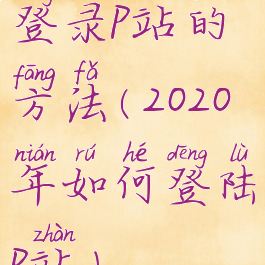 登录P站的
fāng fǎ
方法(2020
nián rú hé dēng lù
年如何登陆
zhàn
P站)